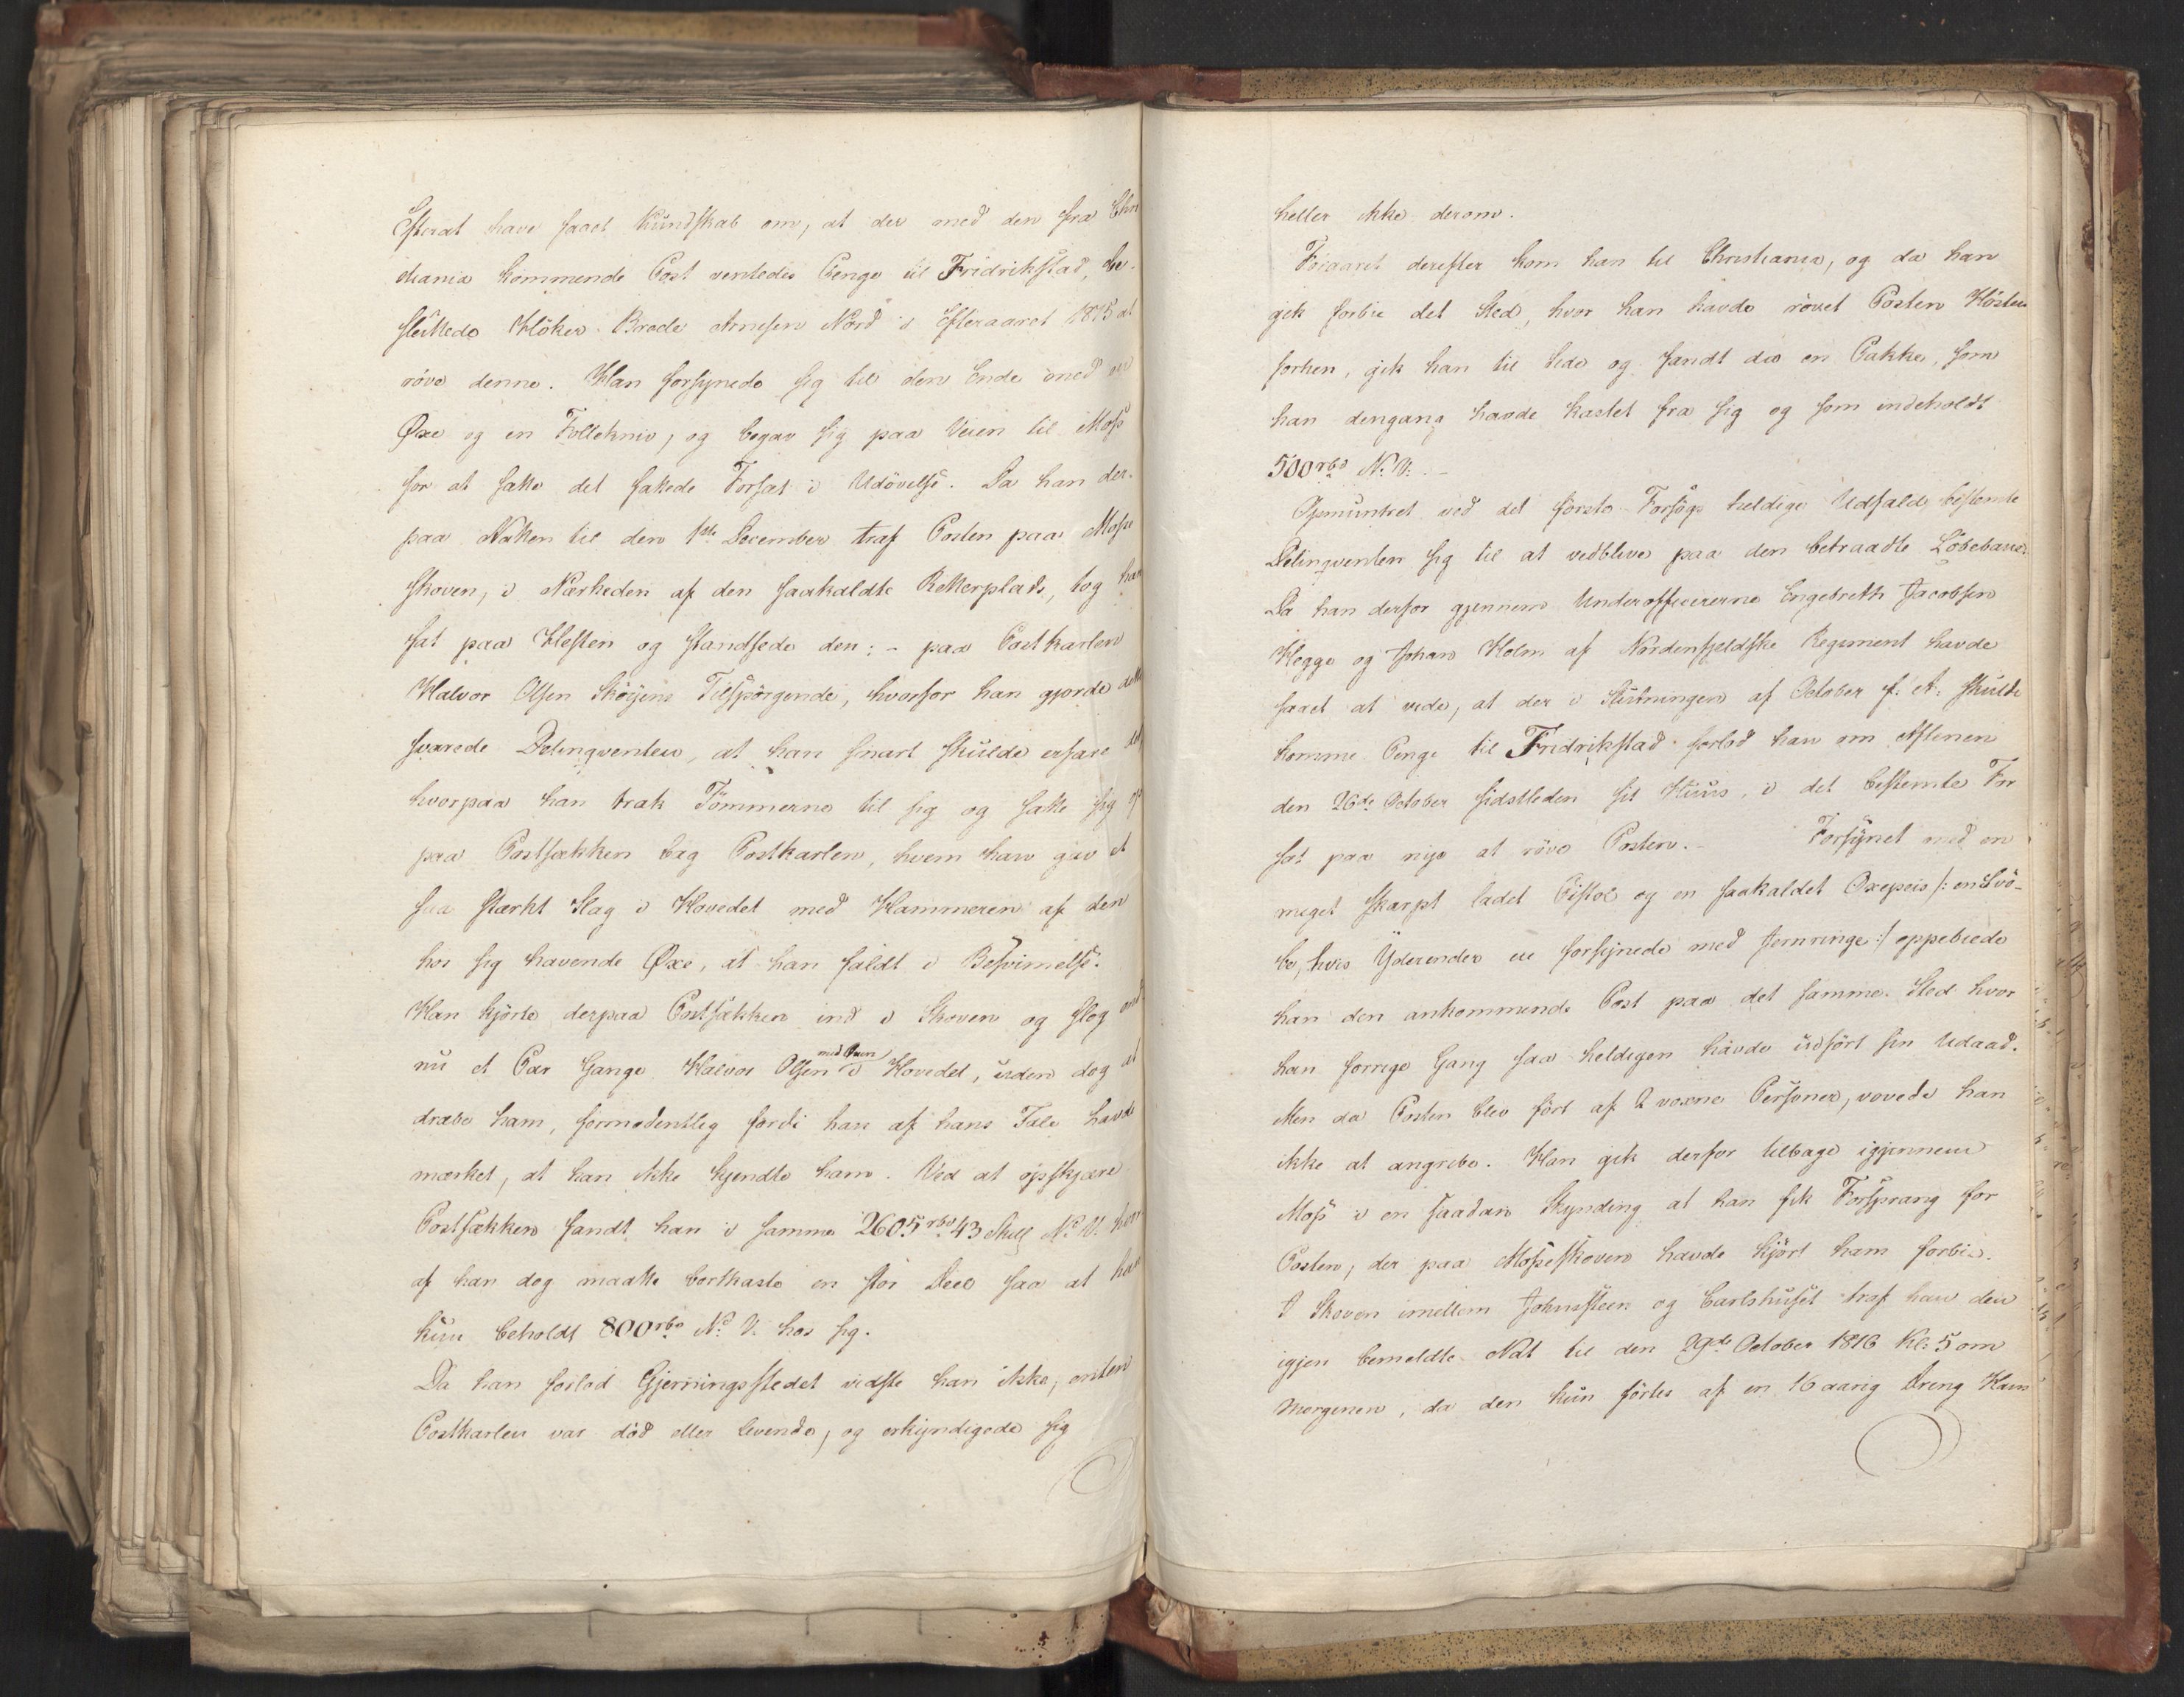 Efterat have faaet Kundskab om, at der med den fra Chri
stiania kommende Post ventedes Penge til Fridrikstad, be-
sluttede Höker Brede Arnesen Nord i Efteraaret 1815 at
röve denne. Han forsynede sig til den Ende med en
Øxe og en Follekniv, og begav sig paa Veien til Moss
for at sætte det fattede Forsæt i Udövelse. Da han der-
paa Natten til den 1ste December traf Posten paa Mosse
skoven, i Nærheden af den saakaldte Retterplads, tog han
fat paa Hesten og standsede den; - paa Postkarlen
Halvor Olsen Sköyens Tilspörgende, hvorfor han gjorde dette
svarede Delinqventen, at han snart skulde erfare det
hvorpaa han trak Tömmerne til sig og satte sig op
paa Postsækken bag Postkarlen, hvem han gav et
saa stærkt Slag i Hovedet med Hammeren af den
hos sig havende Øxe, at han faldt i Besvimelse.
Han kjörte derpaa Postsækken ind i Skoven og slog end
nu et Par Gange Halvor Olsen med Øxen i Hovedet, uden dog at
dræbe ham, formodentlig fordi han af hans Tale havde
mærket, at han ikke kjendte ham. Ved at opskjære
Postsækken fandt han i samme 2605 rbd 43 Skill N. V. hvor
af han dog maatte bortkaste en stor Deel saa at han
kun beholdt 800 rbd N. V. hos sig.
Da han forlod Gjerningsstedet vidste han ikke, enten
Postkarlen var död eller levende, og erkyndigede sig
heller ikke derom.
Foraaret derefter kom han til Christiania, og da han
gik forbie det Sted, hvor han havde rövet Posten Hösten
forhen, gik han til Side og fandt der en Pakke, som
han dengang havde kastet fra sig og som indeholdt
500 rbd N. V. -
Opmuntret ved det förste Forsögs heldige Udfald, bestemte
Delinqventen sig til at vedblive paa den betraadte Löbebane.
Da han derfor gjennem Underofficererne Engebreth Jacobsen
Hegge og Johan Holm af Nordenfjeldske Regiment havde
faaet at vide, at der i Slutningen af October f. A. skulde
komme Penge til Fridrikstad forlod han om Aftenen
den 26de October sidstleden sit Huus, i det bestemte For
sæt paa nye at röve Posten. - Forsynet med en
meget skarpt ladet Pistol og en saakaldet Oxepeis /: en Svö-
be, hvis Yderender ere forsynede med Jernringe :/ oppebiede
han den ankommende Post paa det samme Sted hvor
han forrige Gang saa heldigen havde udfört sin Udaad.
Men da Posten blev fört af 2 voxne Personer, vovede han
ikke at angribe. Han gik derfor tilbage igjennem
Moss i en saadan Skynding at han fik Forsprang for
Posten, der paa Mosseskoven havde kjört ham forbie.
I Skoven imellem Johnssteen og Carlshuset traf han den
igjen bemeldte Nat til den 29de October 1816 Kl: 5 om
Morgenen, da den kun förtes af en 16 aarig Dreng Hans